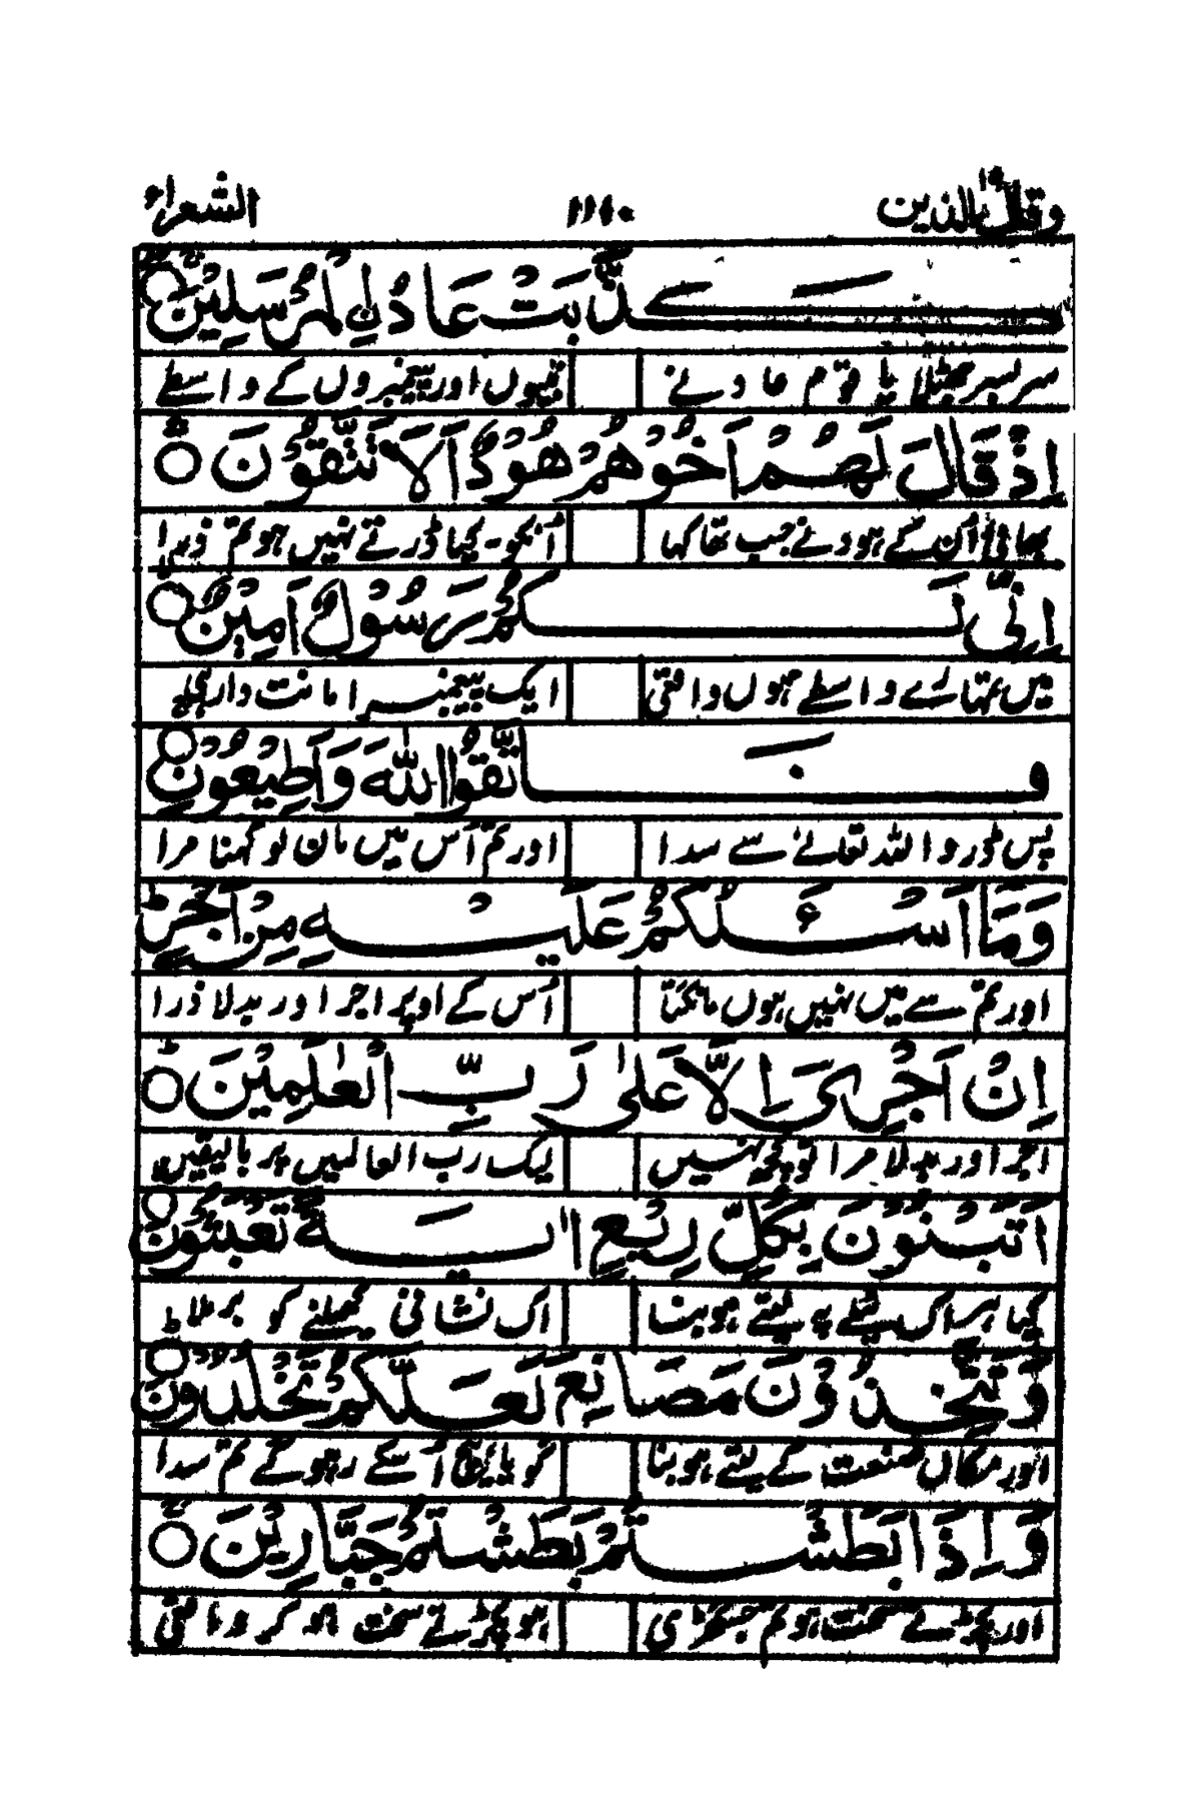 وقال الذین ۱۹ ۱۱۴۰ الشعراء
كَذَّبَتْ عَادُ ۨالْمُرْسَلِيْنَ
سر بسر جھٹلا یا قوم عاد نے نبیوں اور پیغمبروں کے واسطے
اِذْ قَالَ لَهُمْ اَخُوْهُمْ هُوْدٌ اَلَا تَتَّقُوْنَ
بھائی اُن کے ہود نے جب تھا کہا اُنکو۔ کیا ڈرتے نہیں ہو تم ذرا
اِنِّیْ لَكُمْ رَسُوْلٌ اَمِيْنٌ
میں تمہارے واسطے ہوں واقعی ایک پیغمبر امانت دار بھی
فَاتَّقُوا اللّٰهَ وَاَطِيْعُوْنِ
پس ڈرو اللہ تعالےٰ سے سدا اور تم اس میں مان لو کہنا مرا
وَمَا اَسْـَٔلُكُمْ عَلَيْهِ مِنْ اَجْرٍ
اور تم سے میں نہیں ہوں مانگتا اُس کے اوپر اجر اور بدلا ذرا
اِنْ اَجْرِیَ اِلَّا عَلٰى رَبِّ الْعٰلَمِيْنَ
اجر اور بدلا مرا تو کچھ نہیں لیک رب العالمیں پر بالیقیں
اَتَبْنُوْنَ بِكُلِّ رِيْعٍ اٰيَةً تَعْبَثُوْنَ
کیا ہر اک ٹیلے پہ لیتے ہو بنا اک نشانی کھیلنے کو برملا
وَتَتَّخِذُوْنَ مَصَانِعَ لَعَلَّكُمْ تَخْلُدُوْنَ
اور مکان صنعت کے لیتے ہو بنا گویا رہو گے تم سدا
وَاِذَا بَطَشْتُمْ بَطَشْتُمْ جَبَّارِيْنَ
اور پکڑتے سخت ہو تم جس گھڑی ہو پکڑتے سخت ہو کر واقعی